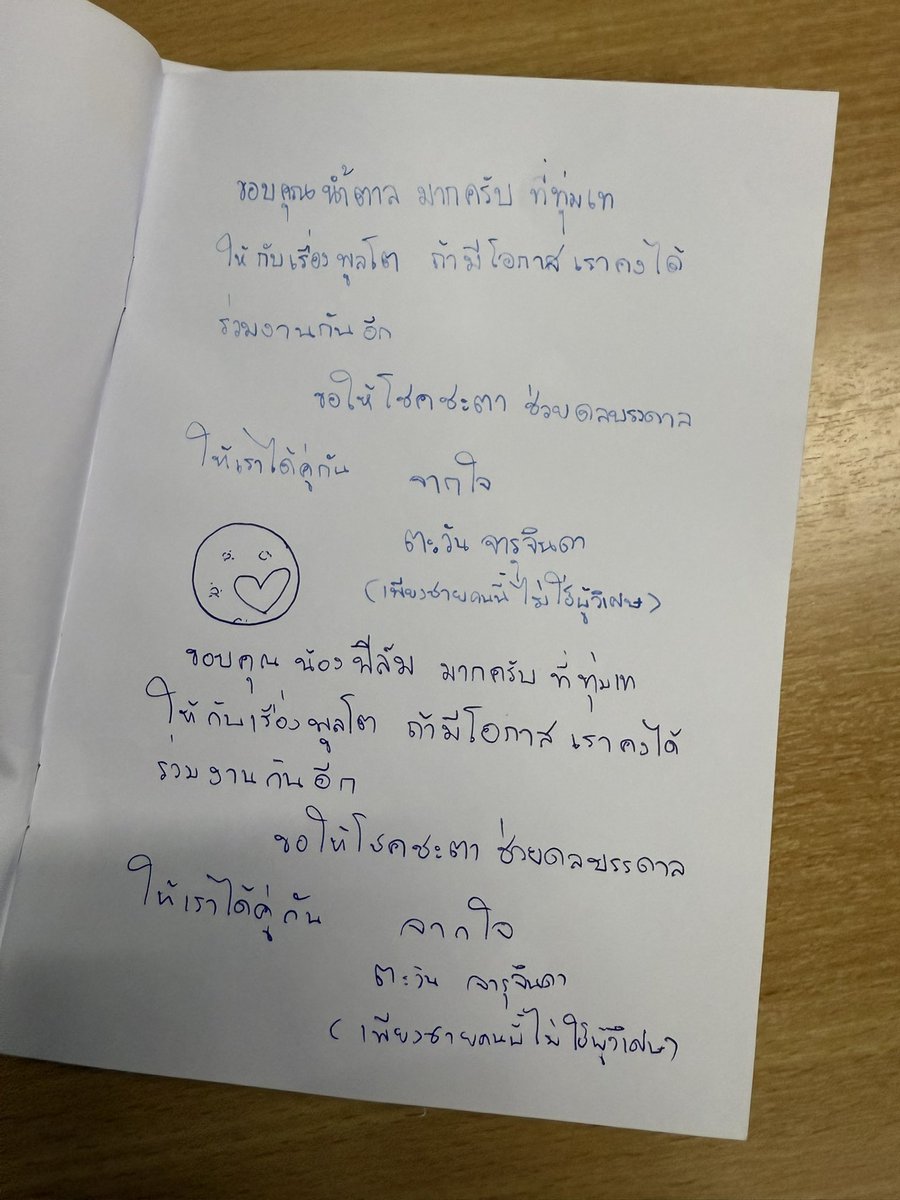 ขอบคุณน้ำตาล มากครับ ที่ทุ่มเท
ให้กับเรื่องพูลโต ถ้ามีโอกาส เราคงได้
ร่วมงานกันอีก
ขอให้โชคชะตา ช่วยดลบรรดาล
ให้เราได้คู่กัน จากใจ
ตะวัน จารุจินดา
(เพียงชายคนนี้ไม่ใช่ผู้วิเศษ)
ขอบคุณ น้องฟิล์ม มากครับ ที่ทุ่มเท
ให้กับเรื่องพูลโต ถ้ามีโอกาส เราคงได้
ร่วมงานกันอีก
ขอให้โชคชะตา ช่วยดลบรรดาล
ให้เราได้คู่กัน จากใจ
ตะวัน จารุจินดา
(เพียงชายคนนี้ไม่ใช่ผู้วิเศษ)